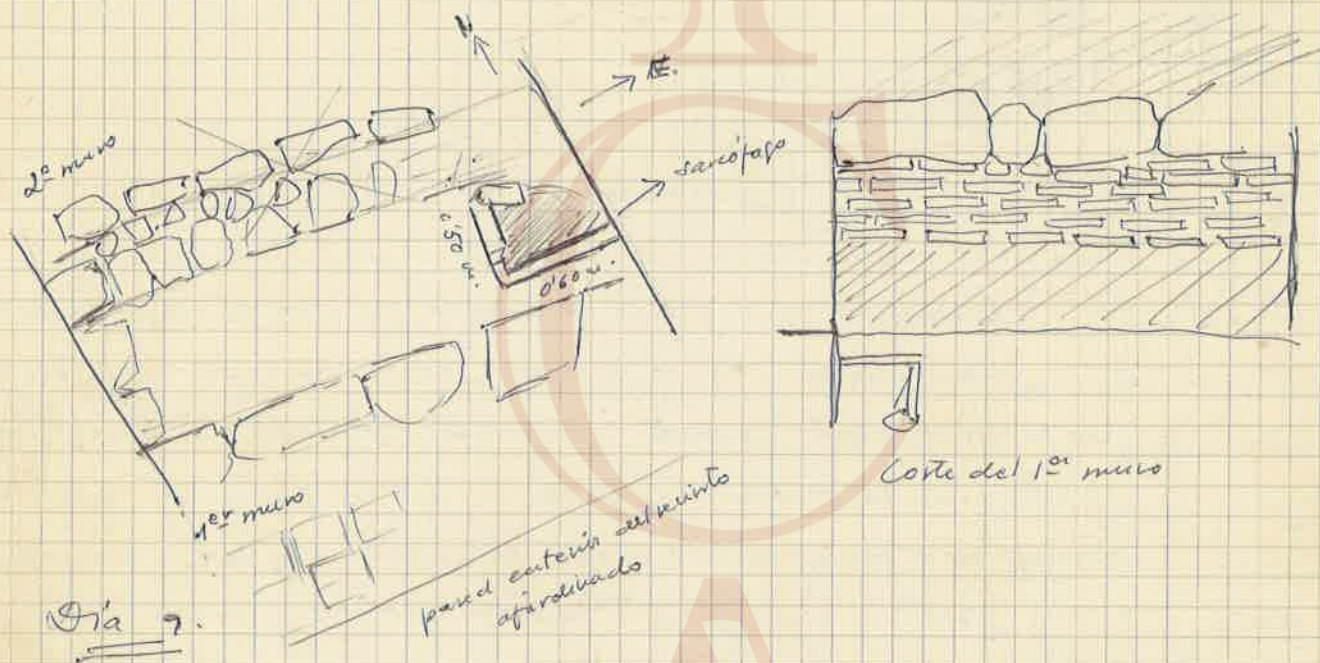 N
E.
2º muro
sarcófago
0'50 m.
0'60 m.
1er muro
pared exterior del recinto
ajardinado
Corte del 1er muro
Día 9.